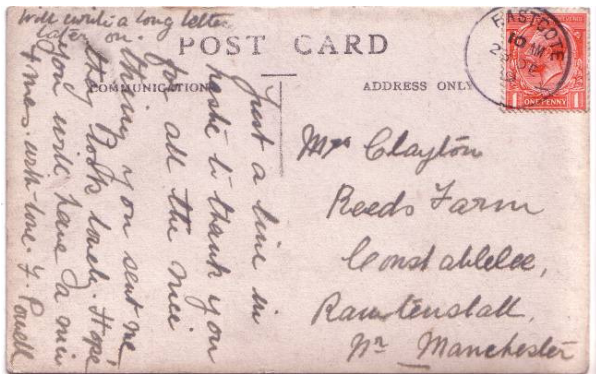 Will write a long letter
later on.
POST CARD
COMMUNICATION
ADDRESS ONLY
EASTCOTE
10 AM
ONE PENNY
Just a line in
haste to thank you
for all the nice
things you sent me
they look lovely. Hope
you will have a nice
Xmas. with love. F. Powell
Mrs Clayton
Reeds Farm
Constablelee,
Rawtenstall,
Nr Manchester